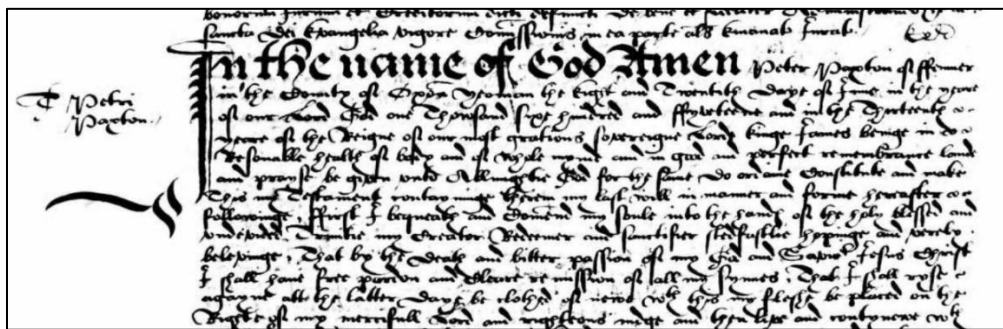 bonorum Jurium et Creditorum dicti defuncti De bene et
sancta Dei Evangelia vigore Comissionis in ea parte als emanat Jurat.
T Petri
Paxton.
In the name of God Amen Peter Paxton of ffremer
in the County of Oxōn yeoman the Eight and Twentith Daye of June in the yeare
of our Lord God one Thowsand Sixe hundred and ffyveteene and in the Thirteenth
yeare of the Reigne of our most gratious sovereigne Lord Kinge James beinge in
Resonable health of body and of whole mynd and in good and perfect remembrance laude
and prayse be given unto Allmightie God for the same Do ordaine Constitute and make
This my Testament contayninge therein my last will in manner and forme hereafter
followinge. ffirst I bequeath and Comend my soule into the hands of the holy blessed and
undevided Trinitie my Creator Redeemer and Sanctifier stedfastlie hopinge and verely
beleevinge, That by the Death and bitter passion of my God and Savior Jesus Christ
I shall have free pardon and Cleare remission of all my synnes, That I shall ryse
agayne att the latter Daye be clothed of newe wth this my fleshe be placed on the
Right of my mercifull Lord and righteous iudge and there lyve and contynewe wth